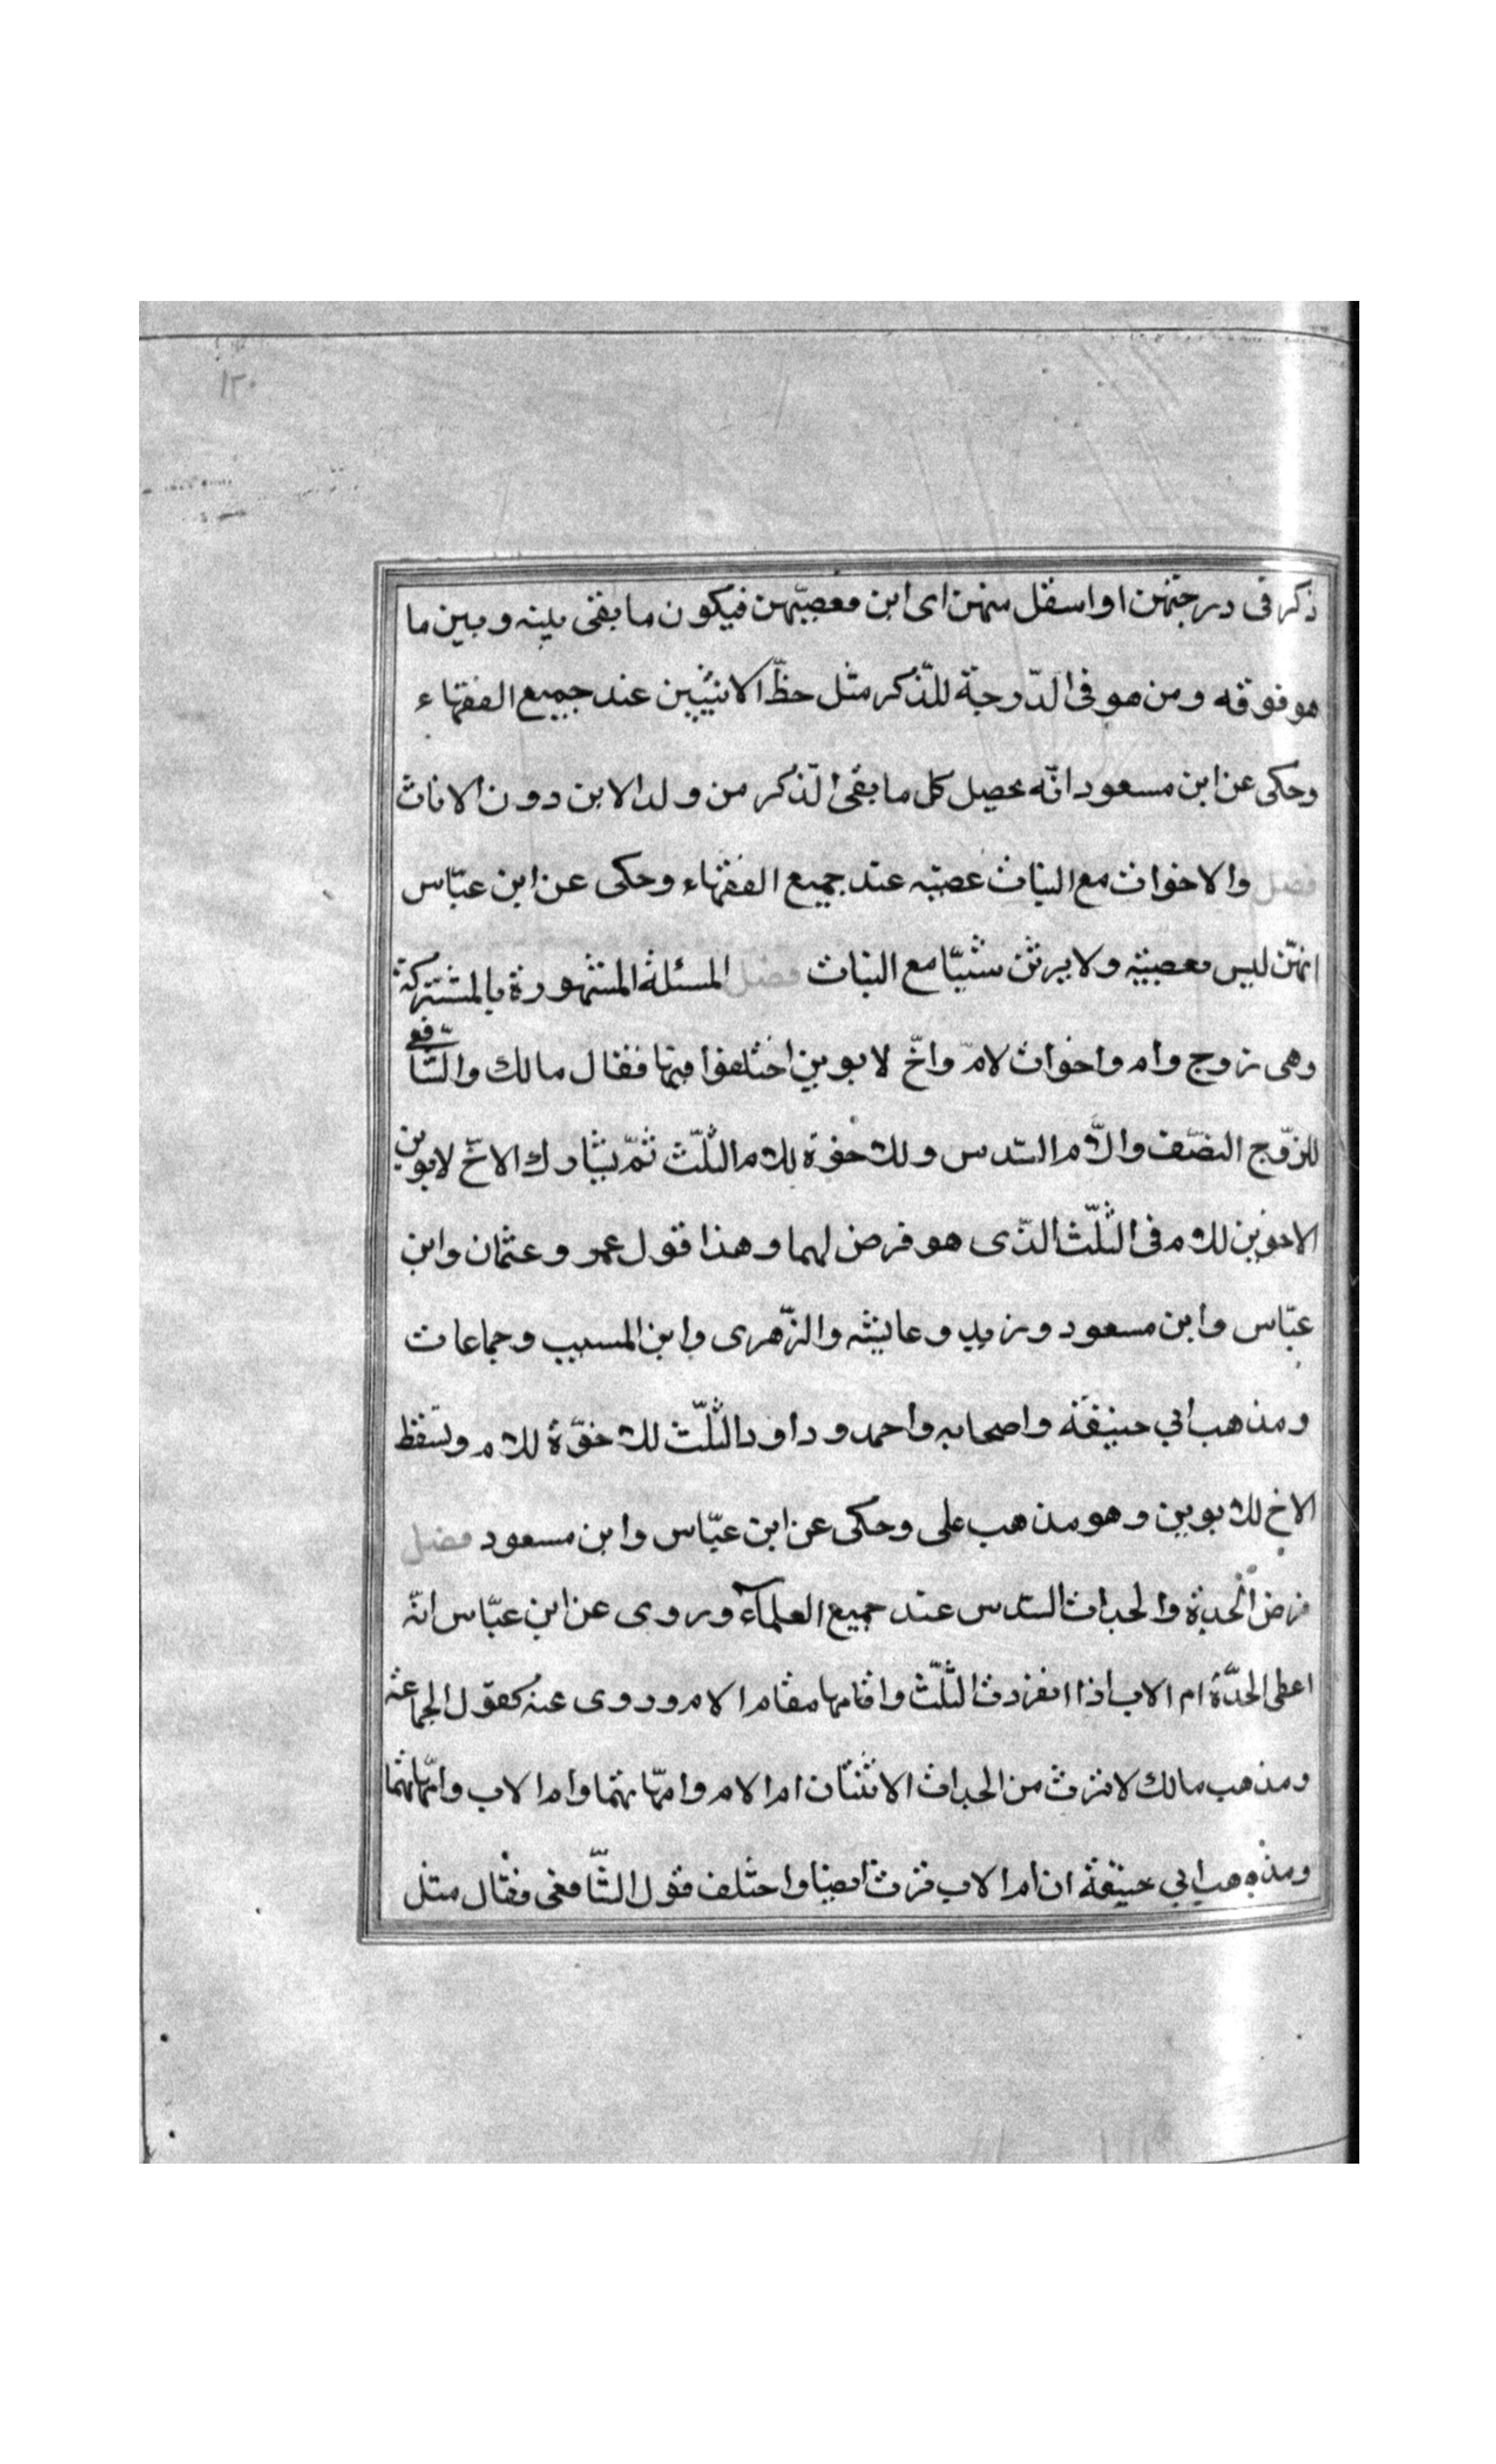 ١٢٠
ذكر فى درجتهن او اسفل منهن اى ابن معصبّهن فيكون ما بقى بينه وبين ما
هو فوقه ومن هو فى الدّرجة للذّكر مثل حظّ الانثيين عند جميع الفقهاء
وحكى عن ابن مسعود انّه يحصل كل ما بقى الذّكر من ولد الابن دون الاناث
فصل والاخوات مع البنات عصبه عند جميع الفقهاء وحكى عن ابن عبّاس
انهّن ليس بعصبيه ولا يرثن شيئا مع البنات فصل المسئلة المشهورة بالمشتركة
وهى زوج وام واخوات لامّ واخّ لابوين اختلفوا فيها فقال مالك والشّافعى
للزّوج النصّف والاّم السّدس وللاخوة للام الثلّث ثمّ يشارك الاخّ لابوين
الاخوين للام فى الثلّث الذّى هو فرض لهما وهذا قول عمر وعثمان وابن
عبّاس وابن مسعود وزيد وعايشه والزّهرى وابن المسيب وجماعات
ومذهب ابي حنيفة واصحابه واحمد وداود الثلّث للاخوّة للام ويسقط
الاخ للابوين وهو مذهب على وحكى عن ابن عبّاس وابن مسعود فصل
فرض الجدّة والجدات السّدس عند جميع العلمآء وروى عن ابن عبّاس انّه
اعطى الجدّة ام الاب اذا انفردت الثلّث واقامها مقام الام وروى عنه كقول الجماعة
ومذهب مالك لا ترث من الجدات الا ثنتان ام الام وامهّاتهما وام الاب وامهّاتهما
ومذهب ابي حنيفة ان ام الاب ترث ايضا واختلف قول الشّافعى فقال مثل